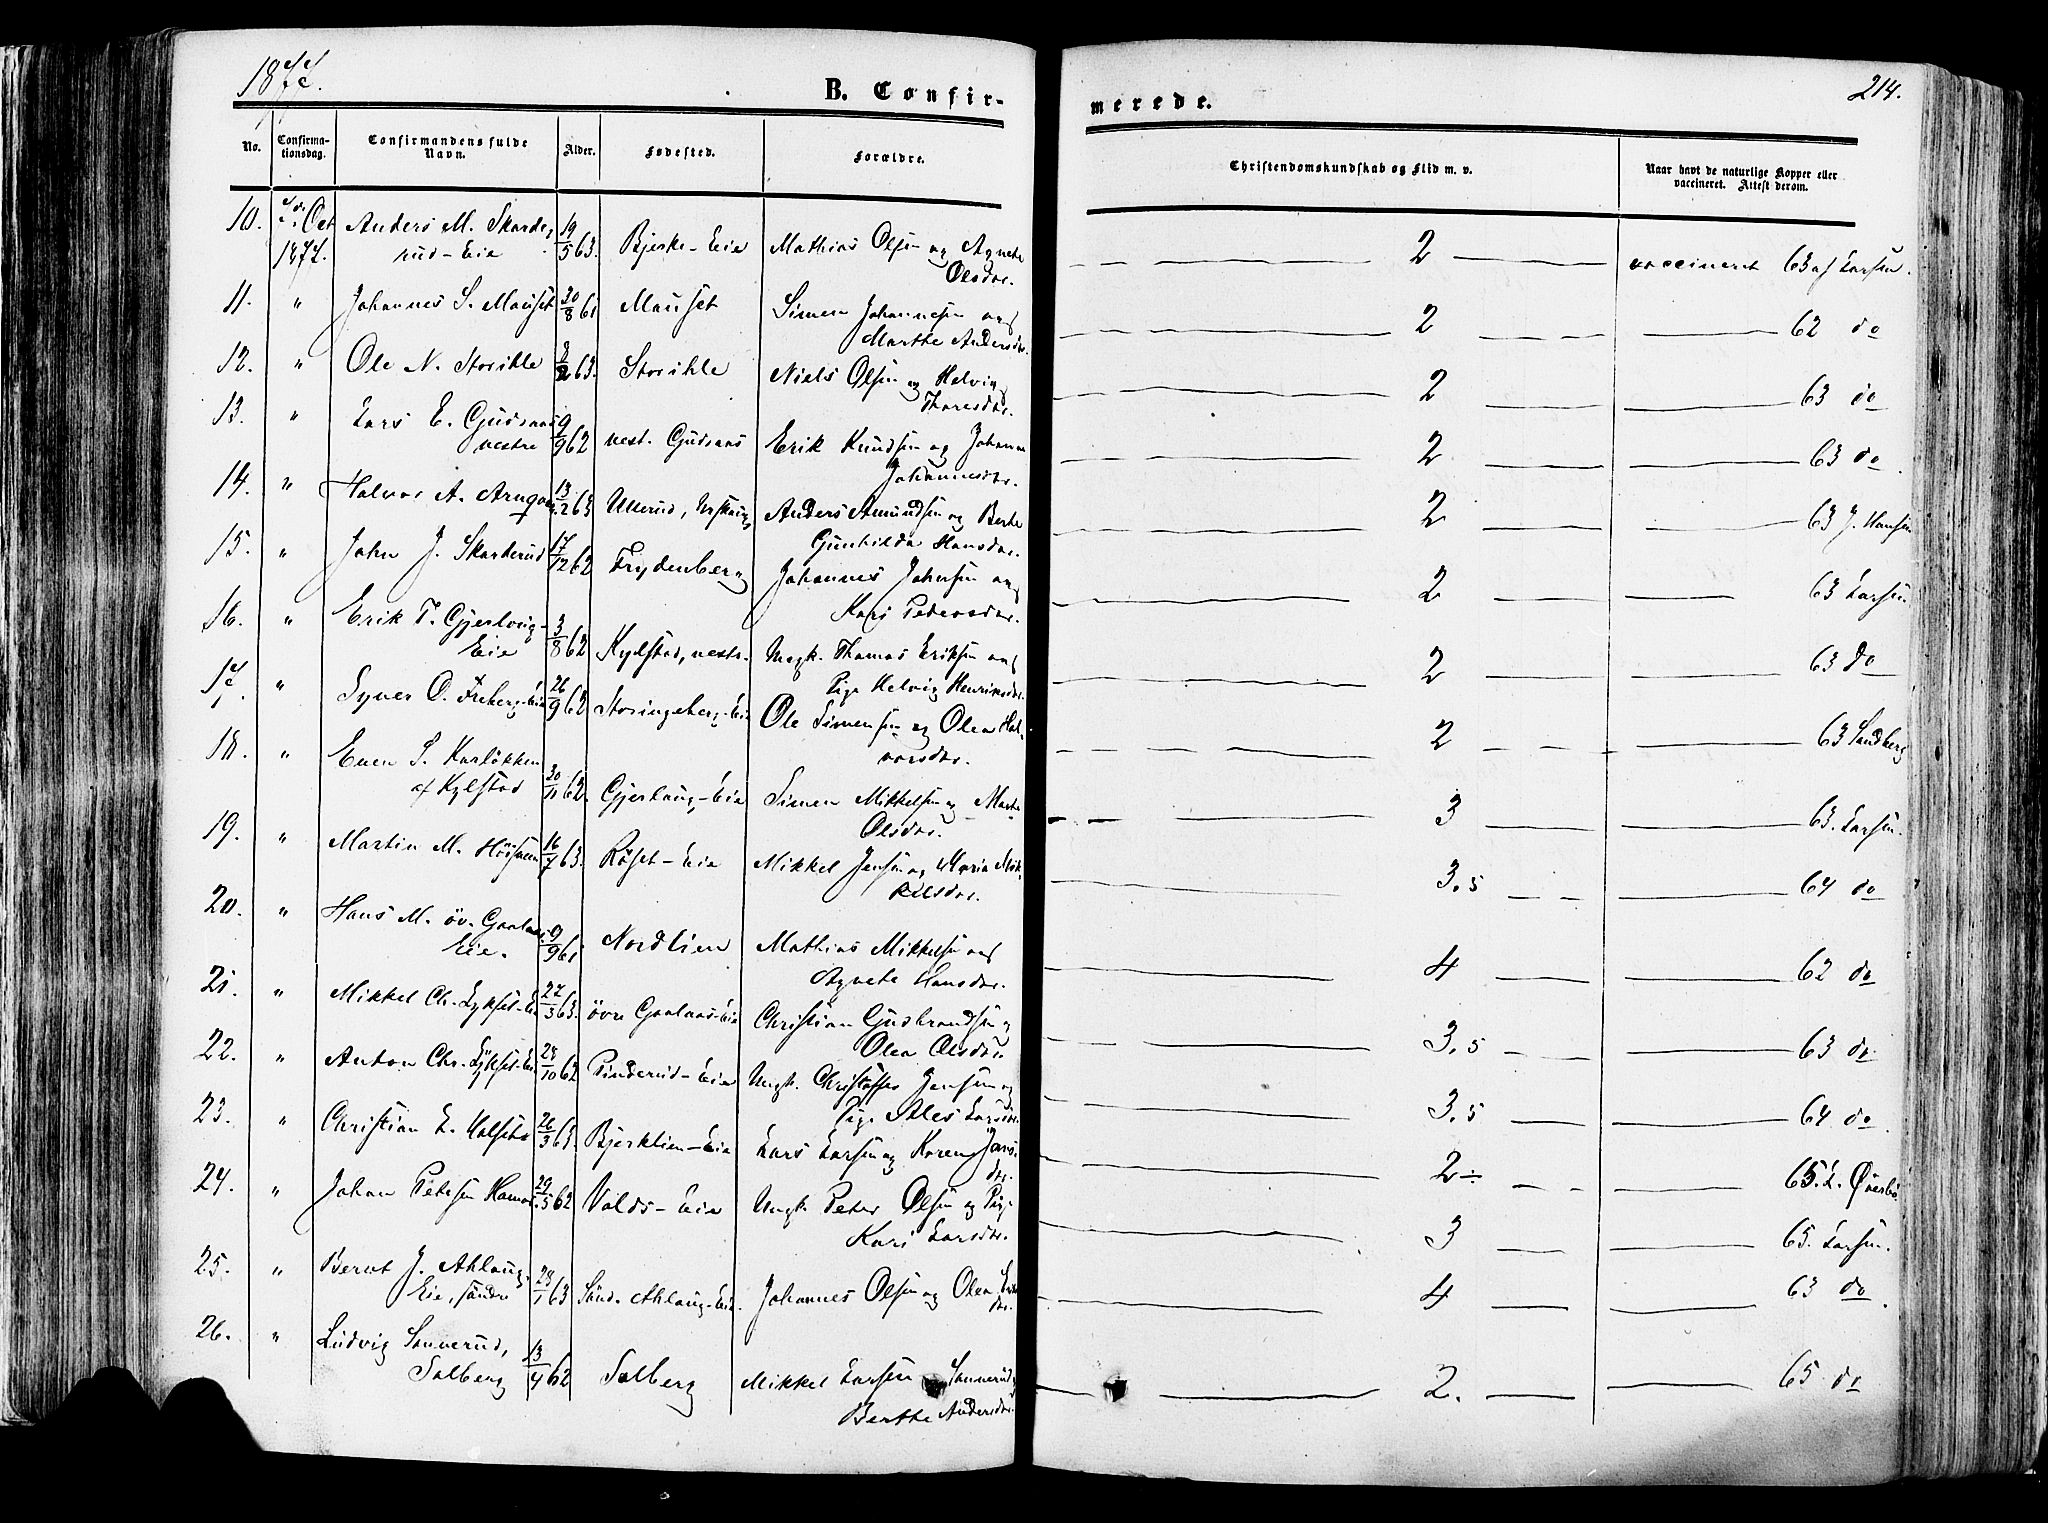 1877.
B. Confir-
merede.
214.
No.
Confirma-
tionsdag.
Confirmandens fulde
Navn.
Alder.
Fødested.
Forældre.
Christendomskundskab og Flid m. v.
Naar havt de naturlige Kopper eller
vaccineret. Attest derom.
10. 7de Oct Anders M. Skarde- 19/5 63. Bjerke-Eie Mathias Olsen og Agnete 2 vaccineret 63 af Larsen.
1877. rud-Eie Olsdtr.
11. " Johannes S. Mauset 30/8 61 Mauset Simen Johannesen og 2 62 do
Marthe Andersdtr.
12. " Ole N. Storihle 2/2 63. Storihle Niels Olsen og Helvig 2 63 do
Thoresdtr.
13. " Lars E. Gudsaas 9/9 62 vest. Gudsaas Erik Knudsen og Johanne 2 63 do
vestre Johannesdtr.
14. " Halvor A. 13/2 63 Ullerud, Anders Amundsen og Berte 2 63 J. Hansen
Gunhilda Hansdtr.
15. " John J. Skarderud 17/12 62 Frydenberg Johannes Johnsen og 2 63 Larsen
Kari Pedersdtr.
16. " Erik T. Gjerlaug- 3/8 62 Kylstad, vestr. Ungk. Thomas Eriksen og 2 63 do
Eie Pige Helvig Henriksdtr.
17. " Syver O. Freberg-Eie 26/9 62 Storingsberg-Eie Ole Simensen og Olea Hal- 2 63 Sandberg
vorsdtr.
18. " Even S. Karløkken 30/11 62. Gjerlaug-Eie Simen Mikkelsen og Marte 3 63. Larsen.
af Kylstad Olsdtr.
19. " Martin M. 16/7 63. Røset-Eie Mikkel Jensen og Maria Mik- 3.5 64 do
kelsdtr.
20. " Hans M. öv. Gaalaas- 9/9 61 Nordlien Mathias Mikkelsen og 4 62 do
Eie. Agnete Hansdtr.
21. " Mikkel Ch. Lykset-Eie 27/3 63. övre Gaalaas-Eie Christian Gudbrandsen og 3.5 63 do
Olea Olsdtr.
22. " Anton Chr. Lykset-Eie 28/10 62 Pinderud-Eie Ungk. Christoffer Jensen og 3.5 64 do
Pige Ales Larsdtr.
23. " Christian L. Halset 26/3 63. Bjerklien-Eie Lars Larsen og Karen Jans- 2÷ 65. L. Øverbö
dtr.
24. " Johan Petersen 29/5 62 Volds-Eie Ungk. Peter Olsen og Pige 3 65. Larsen.
Kari Larsdtr.
25. " Bernt J. Ahlaug- 28/1 63 Sönd. Ahlaug-Eie Johannes Olsen og Olea 4 63 do
Eie, söndre dtr.
26. " Ludvig Sannerud, 13/4 62 Solberg Mikkel Larsen Sannerud 2. 65 do
Solberg Berthe Andersdtr.